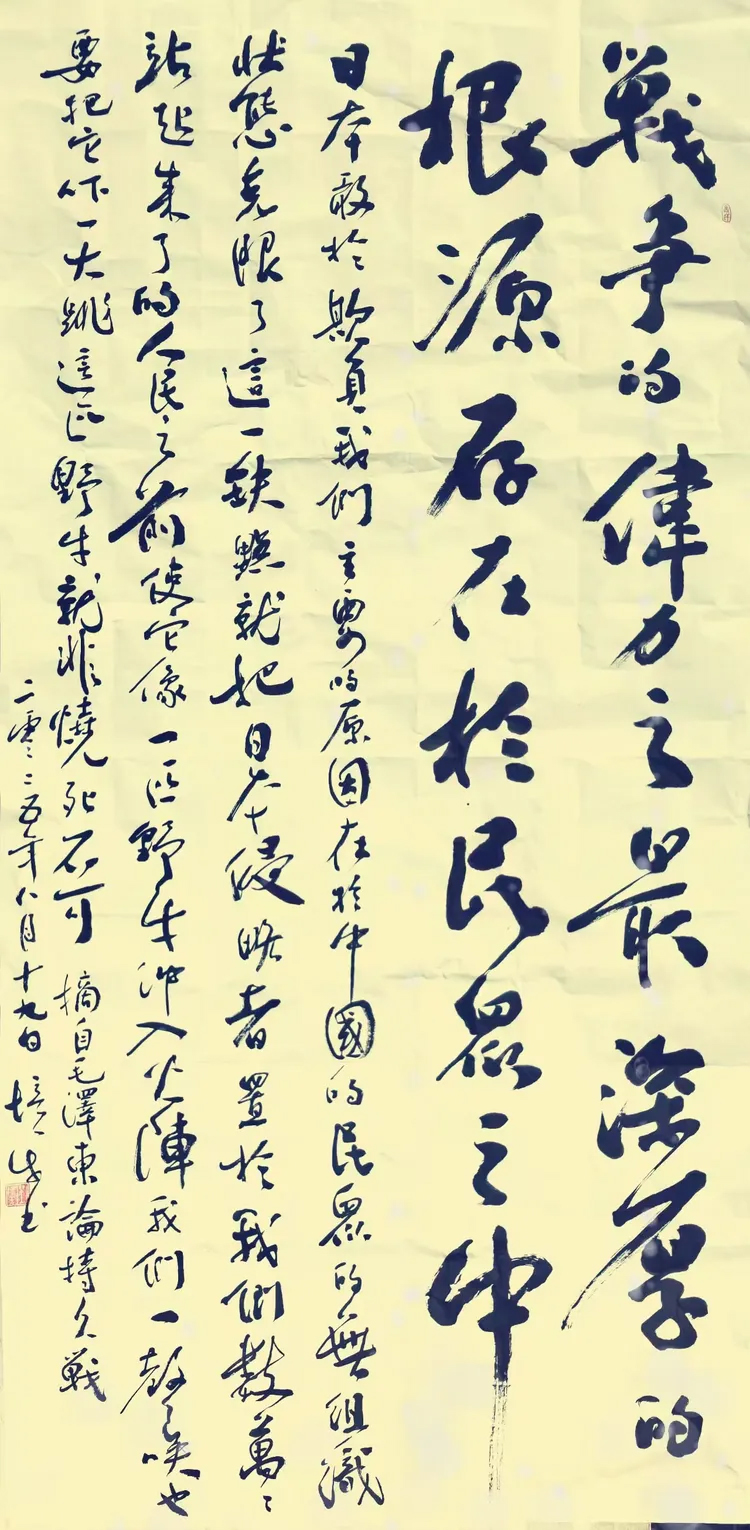 戰爭的偉力之最深厚的
根源存在於民眾之中
日本敢於欺負我們主要的原因在於中國的民眾的無組織
狀態克服了這一缺點就把日本侵略者置於我們數萬〻
站起来了的人民之前使它像一匹野牛沖入火陣我們一聲喚也
要把它吓一大跳這匹野牛就非燒死不可 摘自毛澤東論持久戰
二零二五年八月十九日 培 书